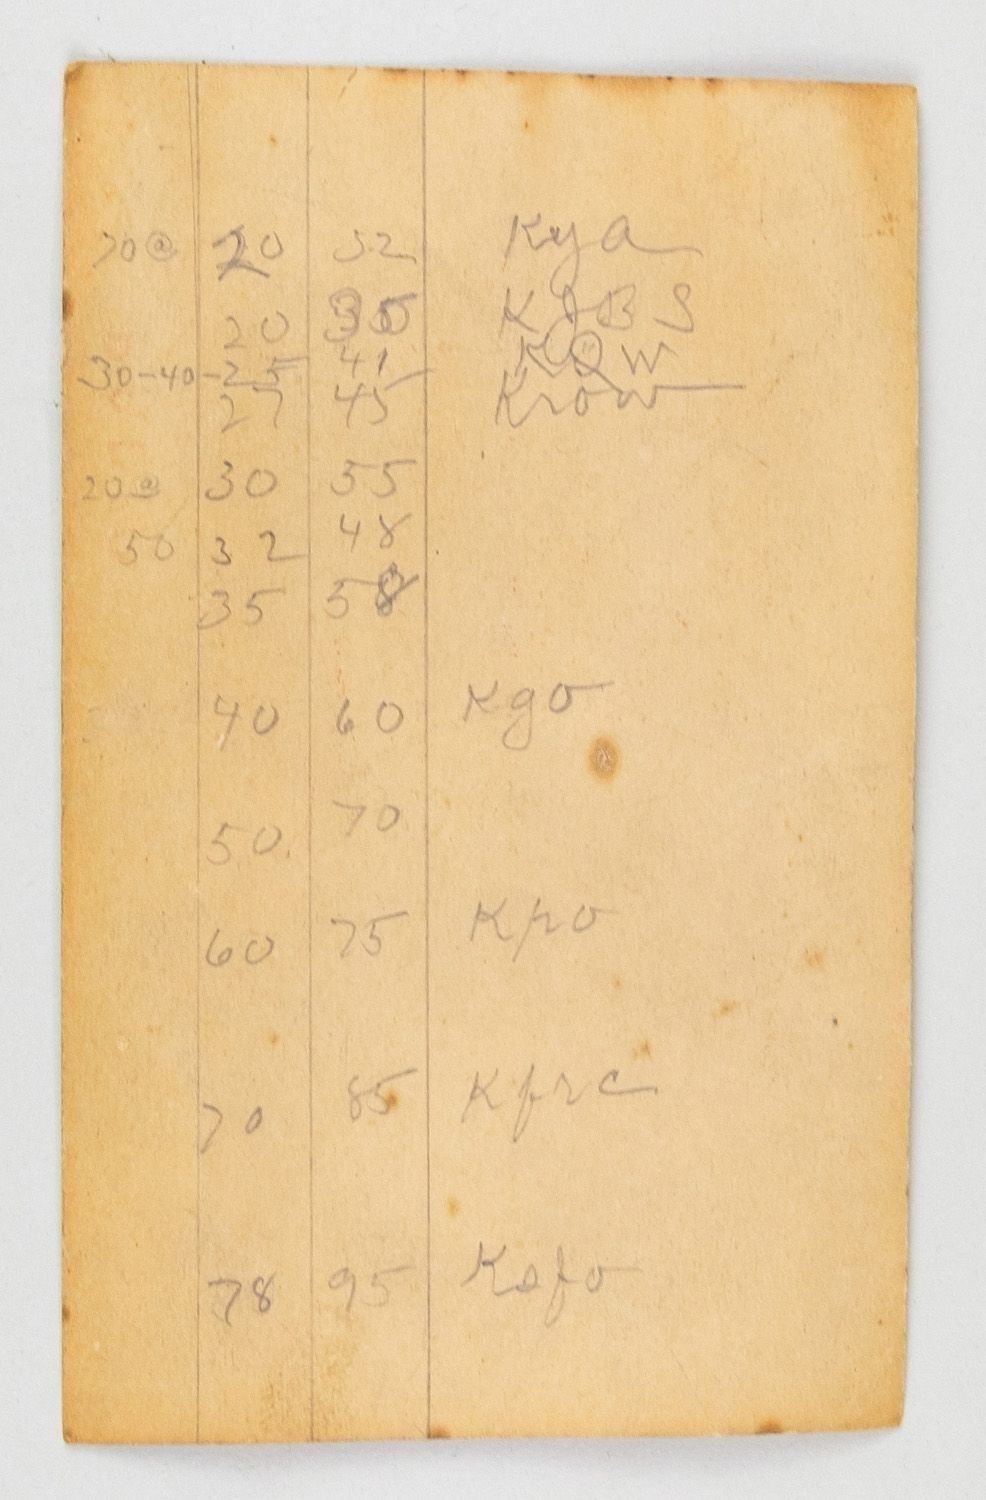 70@ 20 52 Kya
20 35 KJBS
30-40-25 41 KQW
27 45 Krow
20@ 30 55
50 32 48
35 58
40 60 Kgo
50 70
60 75 Kpo
70 85 Kfrc
78 95 Ksfo